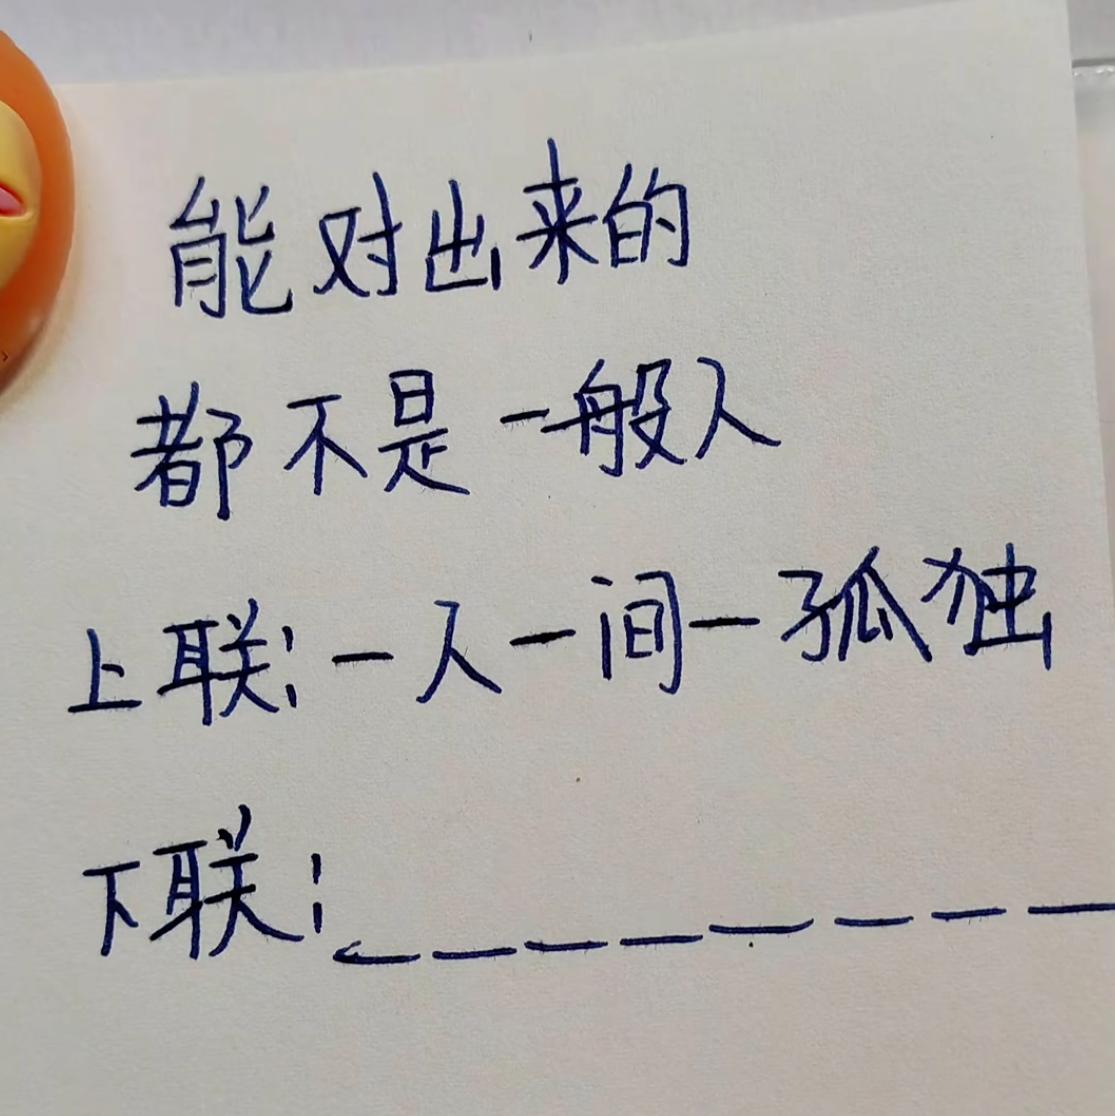 能对出来的
都不是一般人
上联:一人一间一孤独
下联:_ _ _ _ _ _ _ _